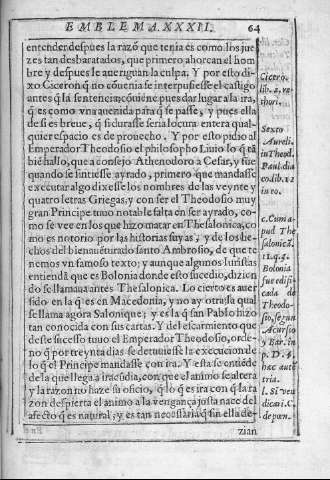 EMBLEMA. XXXII. 64
entender despues la razõ que tenia es como los jue
zes tan desbaratados, que primero ahorcan el hom
bre y despues le aueriguan la culpa. Y por esto di-
xo Ciceron q̃ no cõuenia se interpusiesse el castigo
antes q̃ la sentencia: cõuiene pues dar lugar a la ira,
q̃ es como vna auenida para q̃ se passe, y pues ella
de si es breue, q̃ si durasse seria locura entera qual-
quier espacio es de prouecho. Y por esto pidio al
Emperador Theodosio el philosopho Liuio lo q̃ tã
biẽ hallo, que aconsejo Athenodoro a Cesar, y fue
quando se sintiesse ayrado, primero que mandasse
executar algo dixesse los nombres de las veynte y
quatro letras Griegas, y con ser el Theodosio muy
gran Principe tuuo notable falta en ser ayrado, co-
mo se vee en los que hizo matar en Thesalonica, co
mo es notorio por las historias suyas, y de los he-
chos del bienauẽturado santo Ambrosio, de que te
nemos vn famoso texto; y aunque algunos Iuristas
entiendã que es Bolonia donde esto sucedio, dizien
do se llamaua antes Thesalonica. Lo cierto es auer
sido en la q̃ es en Macedonia, y no ay otra, la qual
se llama agora Salonique; y es la q̃ san Pablo hizo
tan conocida con sus cartas. Y del escarmiento que
deste successo tuuo el Emperador Theodosio, orde-
no q̃ por treynta dias se detuuiesse la execucion de
lo q̃ el Principe mandasse con ira. Y esta se entiẽde
de la que llega a iracũdia, con que el animo se altera
y la razon no haze su oficio, q̃ lo q̃ es ira con q̃ la ra
zon despierta el animo a la vengança justa nace del
afecto q̃ es natural; y es tan necessaria q̃ sin ella de-
zian
Cicero.
lib. 2. re
thori.
Sexto
Aureli.
in Theod.
Paul. dia
co. lib. 12
in eo.
c. Cum a-
pud The
salonicã.
11. q. 4.
Bolonia
fue edifi
cada de
Theodo-
sio, según
Acursio
y Bar. in
p. D. §.
hac aute
tria.
l. Si ven
dicari. C.
de pœn.